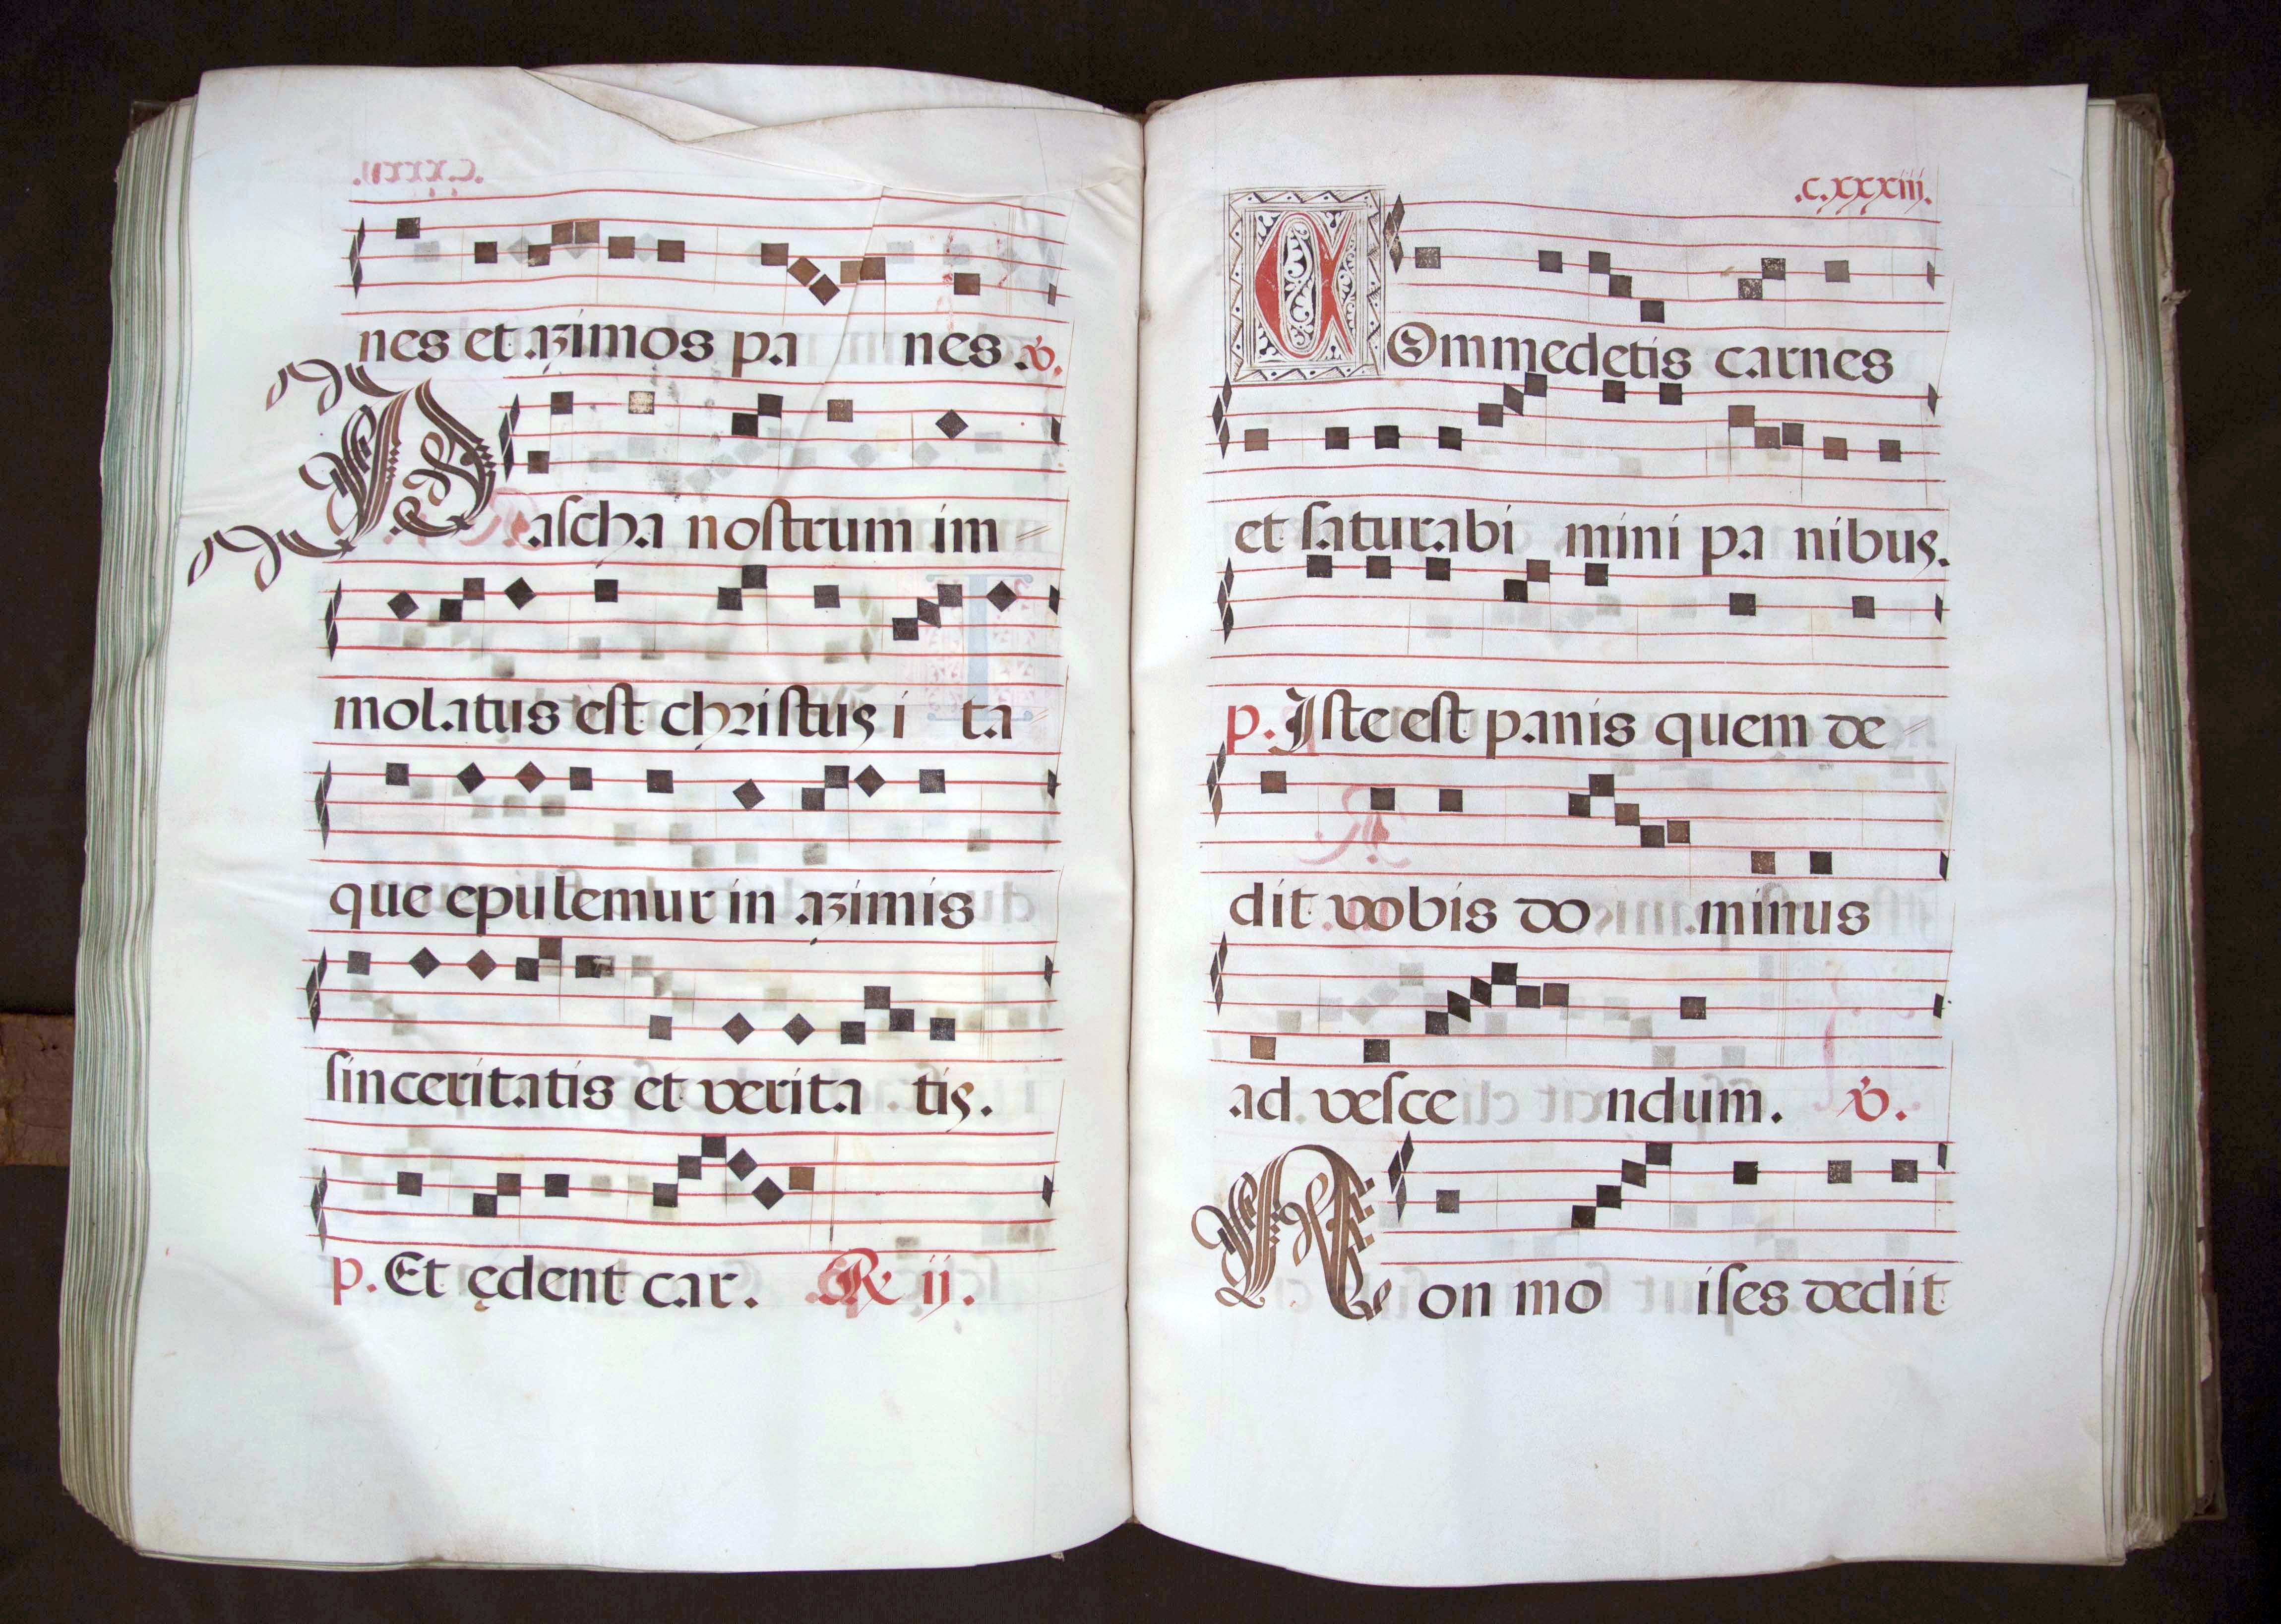 nes et azimos pa nes. ℣.
Pascha nostrum im
molatus est christus i ta
que epulemur in azimis
sinceritatis et verita tis.
p. Et edent car. ℟ ij.
.c.xxxiii.
Commedetis carnes
et saturabi mini pa nibus.
p. Iste est panis quem de
dit vobis do minus
ad vesce ndum. ℣.
Non mo ises dedit